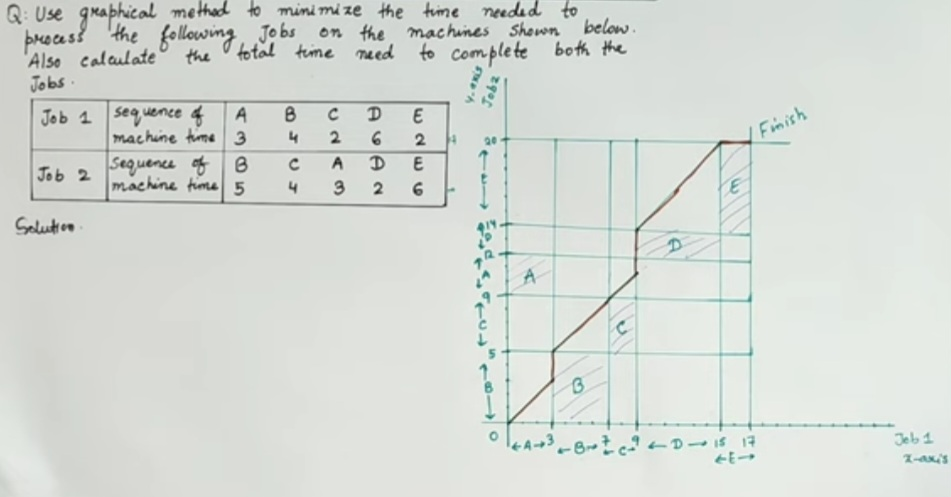 Q: Use graphical method to minimize the time needed to
process the following Jobs on the machines shown below.
Also calculate the total time need to complete both the
Jobs.
Job 1 sequence of A B C D E
machine time 3 4 2 6 2
Job 2 Sequence of B C A D E
machine time 5 4 3 2 6
Solution.
y-axis
Job 2
Finish
20
E
E
14
D
D
12
A
A
9
C
C
5
B
B
0 3 7 9 15 17
A B C D E
Job 1
x-axis